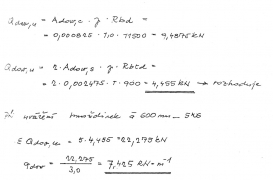 Qdov,u = Adov,c · γ · Rbd =
= 0,000825 · 1,0 · 11500 = 9,4875 kN
Qdov,u = 2 · Adov,s · γ · Rbtd =
= 2 · 0,002475 · 1 · 900 = 4,455 kN → rozhoduje
Při uvážení hmoždinek á 600 mm
Σ Qdov,u = 5 · 4,455 = 22,275 kN
qdov = 22,275 / 3,0 = 7,425 kN · m⁻¹